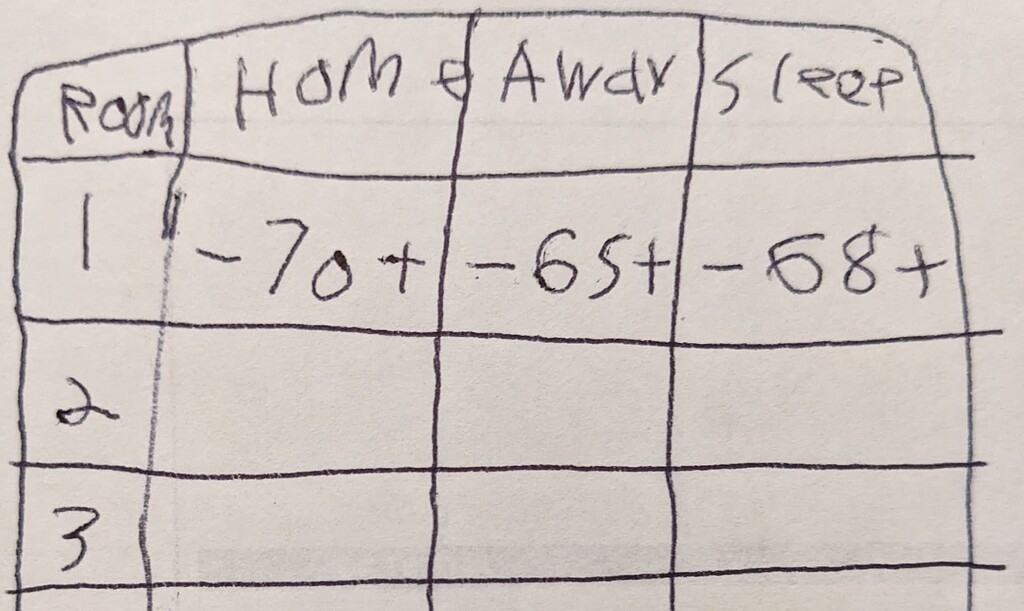 Room Home Away Sleep
1 -70+ -65+ -68+
2
3